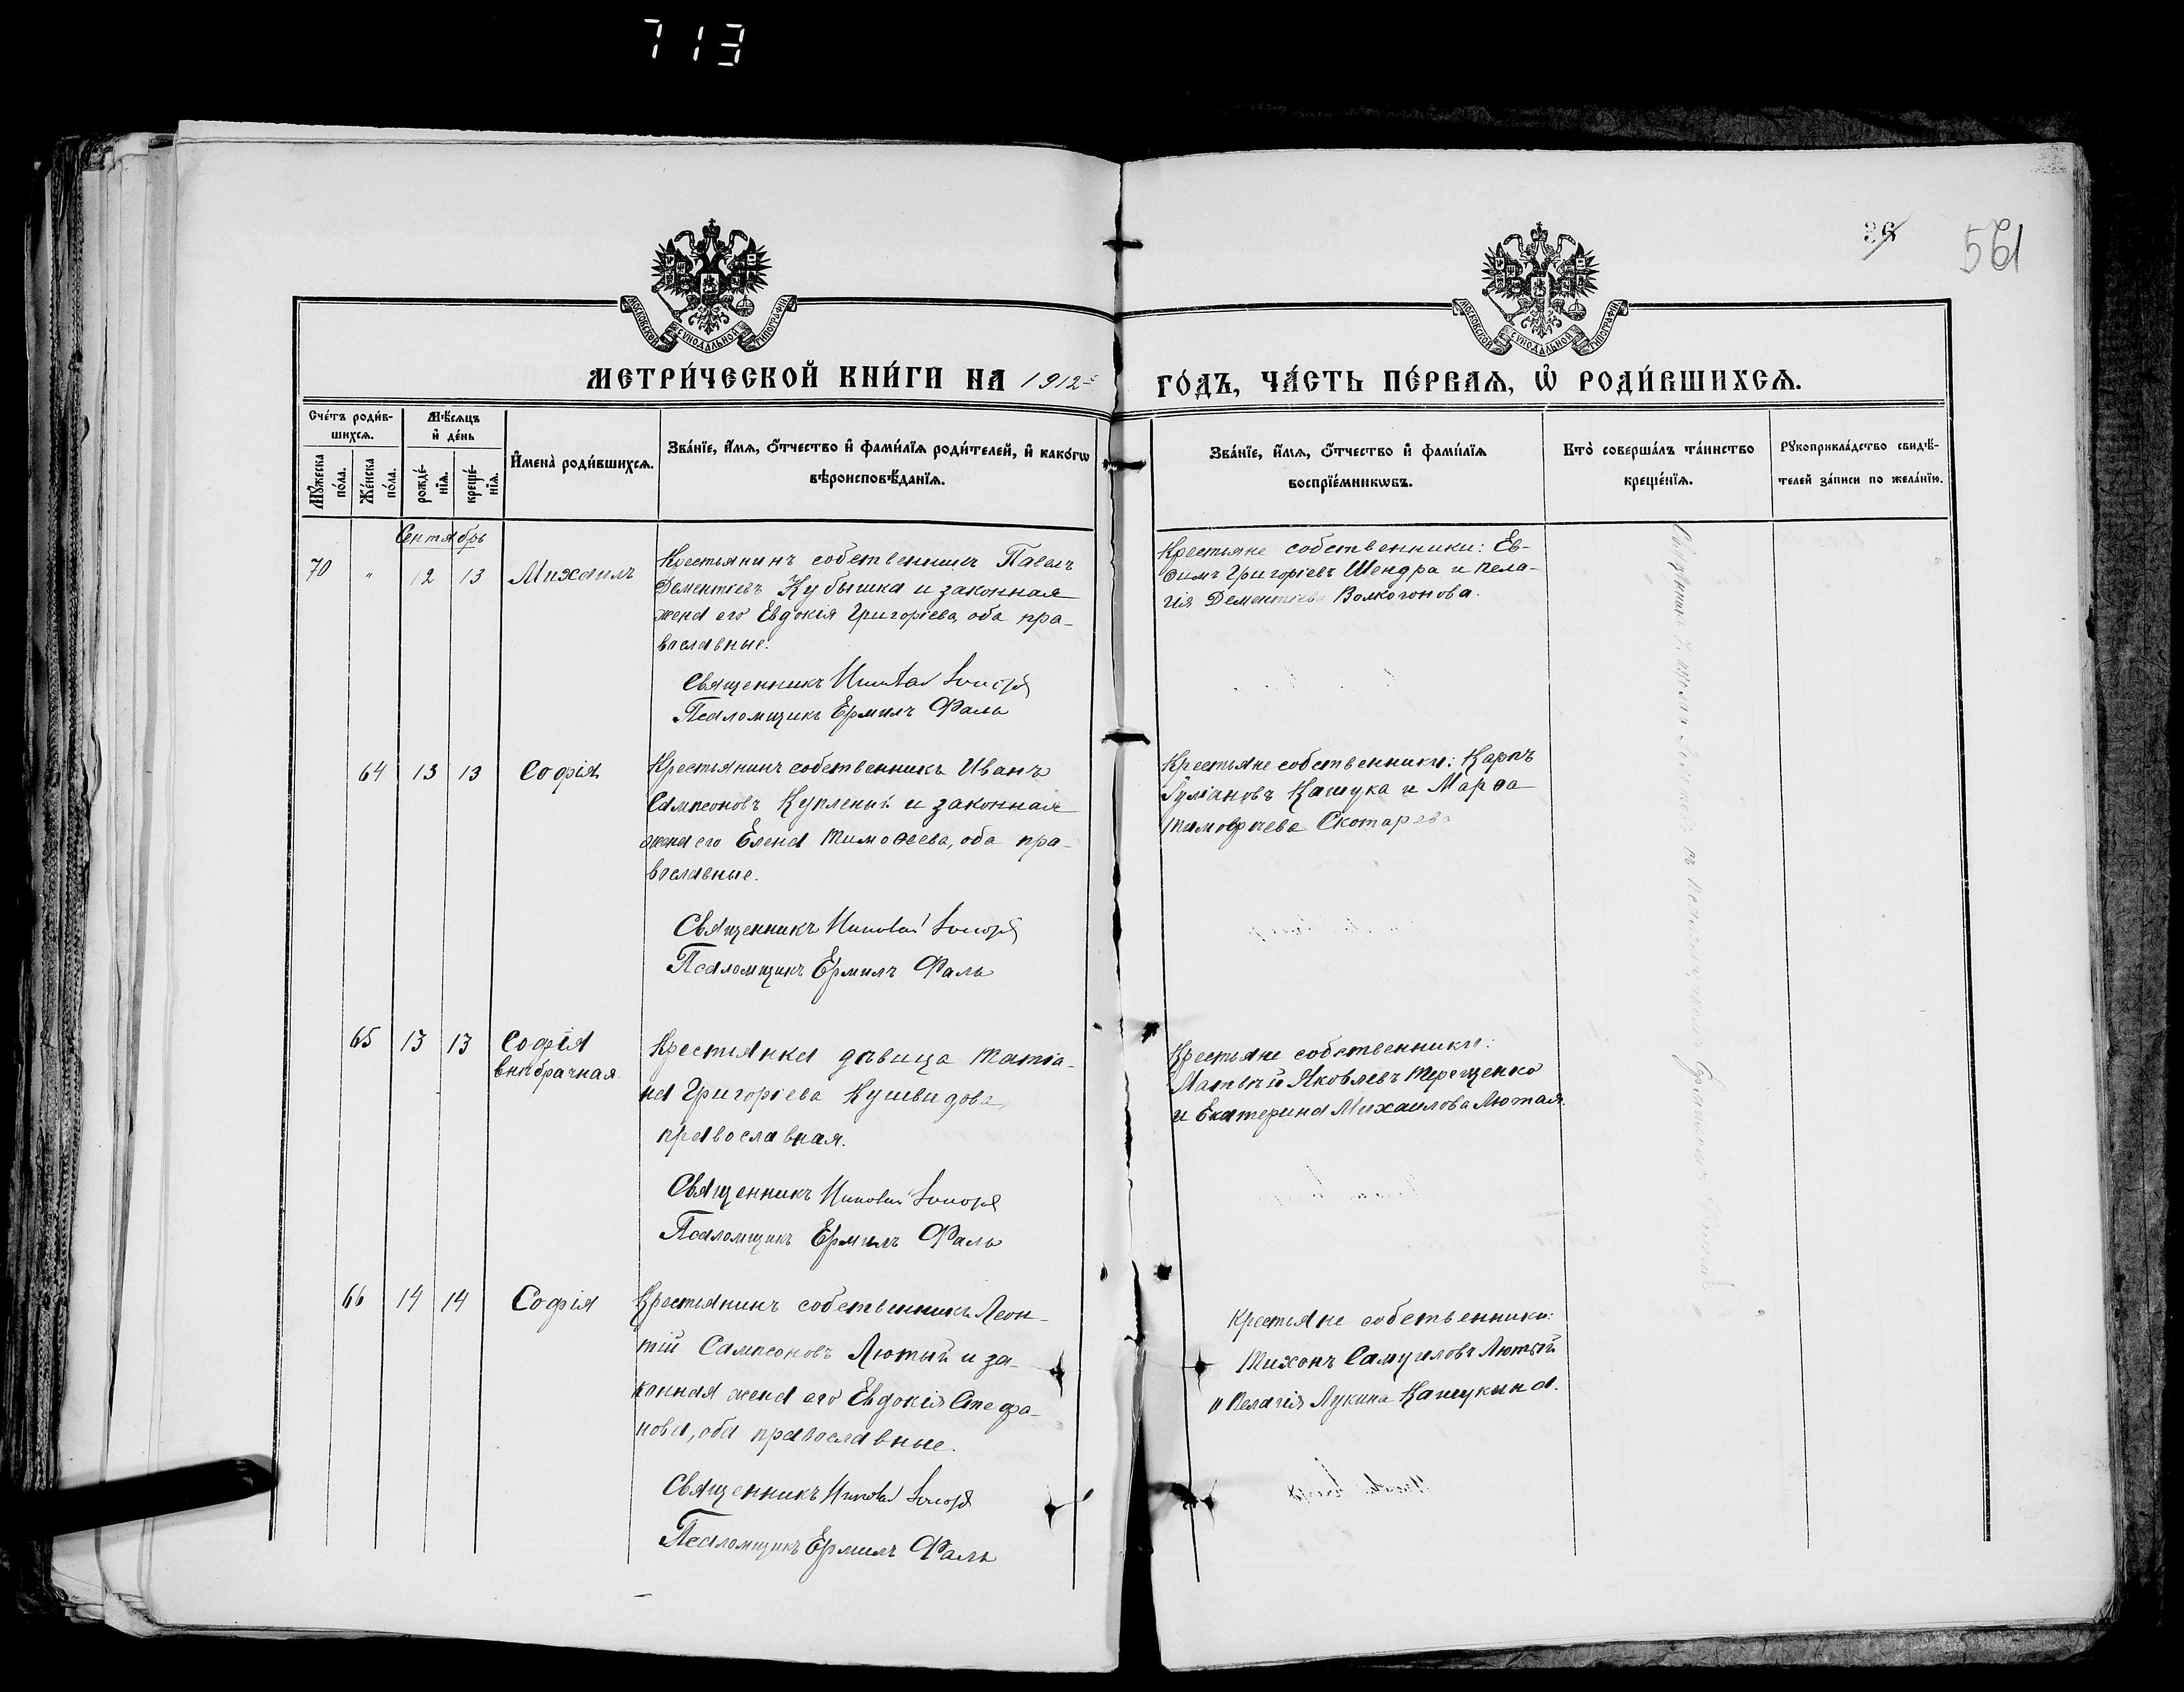 713
36
561
МОСКОВСКОЙ СѴНОДАЛЬНОЙ ТИПОГРАФІИ
МОСКОВСКОЙ СѴНОДАЛЬНОЙ ТИПОГРАФІИ
МЕТРИ́ЧЕСКОЙ КНИ́ГИ НА 1912
ГО́ДЪ, ЧА́СТЬ ПЕ́РВАЯ, Ѡ РОДИ́ВШИХСЯ.
Сче́тъ роди́в-
шихся.
Мѣ́сяцъ
и де́нь
Му́жеска по́ла.
Же́нска по́ла.
рожде́-
нія.
креще́-
нія.
Имена̀ роди́вшихся.
Зва́ніе, и́мя, о́тчество и фами́лія роди́телей, и како́гѡ
вѣроисповѣ́данія.
Зва́ніе, и́мя, о́тчество и фами́лія
воспріе́мникѡвъ.
Кто̀ соверша́лъ та́инство
креще́нія.
Рукоприкла́дство свидѣ́-
телей за́писи по жела́нію.
Сентябрь
70 " 12 13 Михаилъ
Крестьянинъ собственникъ Павелъ
Дементіевъ Кубышка и законная
жена его Евдокія Григоріева, оба пра-
вославные.
Священникъ Николай
Псаломщикъ Ермилъ Фаль
Крестьяне собственники: Ев-
фимъ Григоріевъ Шендра и Пела-
гія Дементіева Волкогонова.
64 13 13 Софія
Крестьянинъ собственникъ Иванъ
Сампсоновъ Купленый и законная
жена его Елена Тимоѳеева, оба пра-
вославные.
Священникъ Николай
Псаломщикъ Ермилъ Фаль
Крестьяне собственники: Карпъ
Іуліановъ Кашука и Марѳа
Тимоѳеева Скотарева
65 13 13 Софія
внѣбрачная
Крестьянка дѣвица Татіа-
на Григоріева Кушвидова,
православная.
Священникъ Николай
Псаломщикъ Ермилъ Фаль
Крестьяне собственники:
Матвѣй Яковлевъ Терещенко
и Екатерина Михаилова Лютая.
66 14 14 Софія
Крестьянинъ собственникъ Леон-
тій Сампсоновъ Лютый и за-
конная жена его Евдокія Стефа-
нова, оба православные.
Священникъ Николай
Псаломщикъ Ермилъ Фаль
Крестьяне собственники:
Тихонъ Самуиловъ Лютый
и Пелагія Лукина Кашукина.